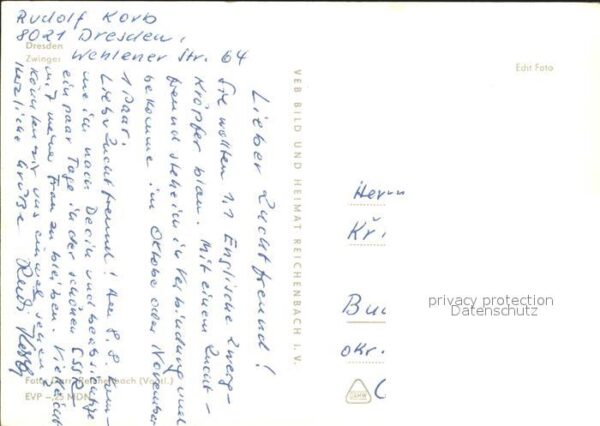 Rudolf Korb
8021 Dresden,
Wehlener Str. 64
Dresden
Zwinger
Lieber Zuchtfreund!
Sie wollten 1,1 Englische Zwerg-
Kröpfer blau. Mit einem Zucht-
freund stehe ich in Verbindung und
bekomme im Oktober oder November
1 Paar.
Lieber Zuchtfreund! Am 8.8. kom-
me ich nach Decin und beabsichtige
ein paar Tage in der schönen CSSR
mit meiner Frau zu bleiben. Vielleicht
könnten wir uns einmal sehen?
Herzliche Grüße
Rudi Korb
Foto: Darr, Reichenbach (Vogtl.)
EVP -,25 MDN
VEB BILD UND HEIMAT REICHENBACH I. V.
Edit Foto
Herrn
Kři
Bud
okr.
privacy protection
Datenschutz